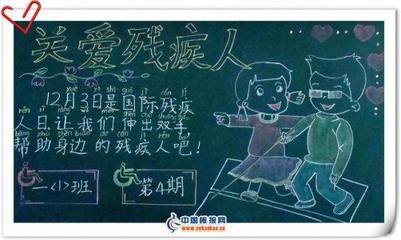 关爱残疾人
12月3日是国际残疾
人日,让我们伸出双手
帮助身边的残疾人吧!
一<1>班
第4期
中国板报网